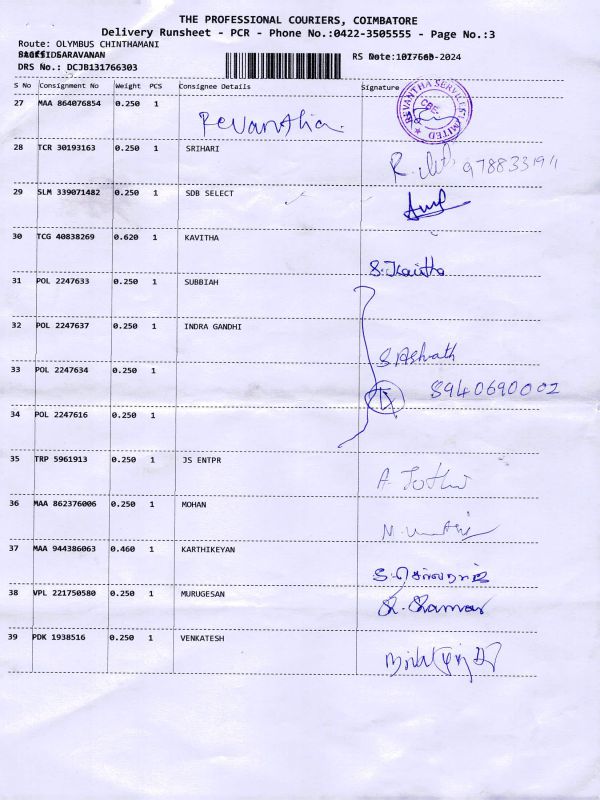 THE PROFESSIONAL COURIERS, COIMBATORE
Delivery Runsheet - PCR - Phone No.:0422-3505555 - Page No.:3
Route: OLYMBUS CHINTHAMANI
SARAVANAN
DRS No.: DCJB131766303
S No Consignment No Weight PCS Consignee Details Signature
27 MAA 864076854 0.250 1 Revanthia.
REVANTHA SERVICES LIMITED
CBE
28 TCR 30193163 0.250 1 SRIHARI
29 SLM 339071482 0.250 1 SDB SELECT
30 TCG 40838269 0.620 1 KAVITHA
S. Kavitha
31 POL 2247633 0.250 1 SUBBIAH
32 POL 2247637 0.250 1 INDRA GANDHI
S. Ashvath
33 POL 2247634 0.250 1
8940690002
34 POL 2247616 0.250 1
35 TRP 5961913 0.250 1 JS ENTPR
36 MAA 862376006 0.250 1 MOHAN
37 MAA 944386063 0.460 1 KARTHIKEYAN
38 VPL 221750580 0.250 1 MURUGESAN
39 PDK 1938516 0.250 1 VENKATESH